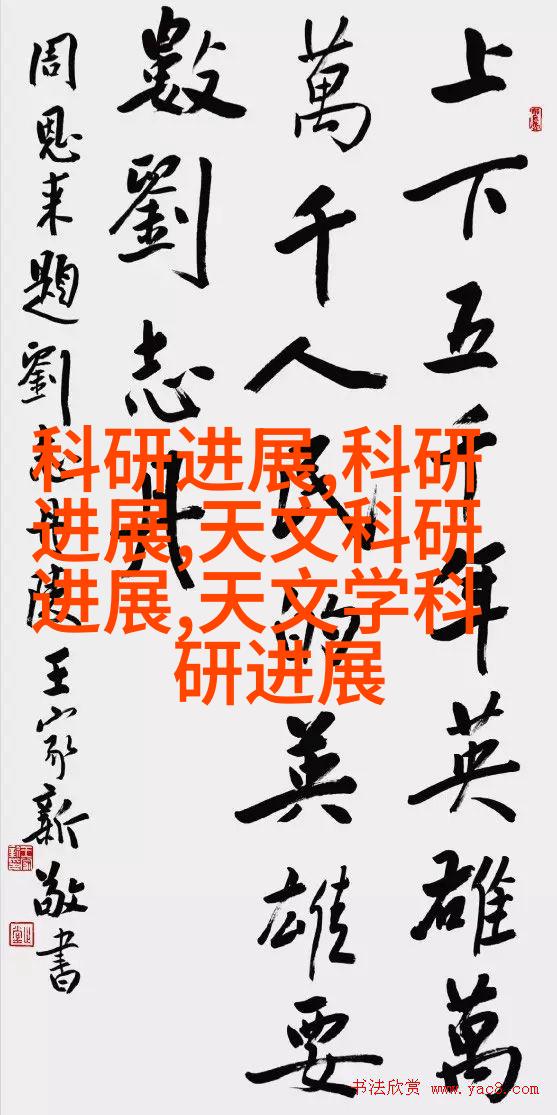 上下五千年英雄萬
萬千人民的英雄要
數劉志丹
周恩来題劉志丹陵王家新敬書
科研进展,科研
进展,天文科研
进展,天文学科
研进展
书法欣赏 www.yac8.com